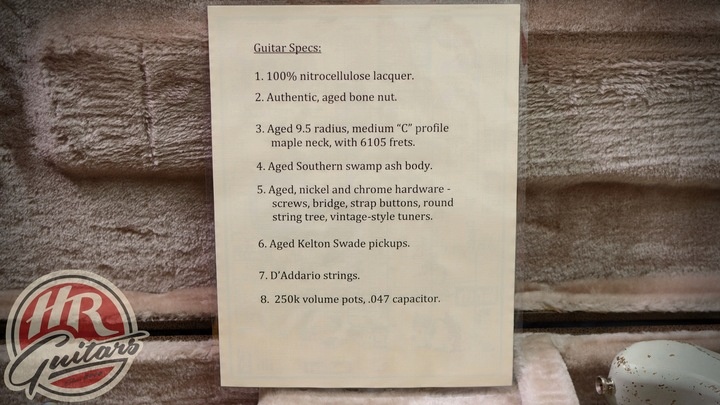 Guitar Specs:
1. 100% nitrocellulose lacquer.
2. Authentic, aged bone nut.
3. Aged 9.5 radius, medium “C” profile
maple neck, with 6105 frets.
4. Aged Southern swamp ash body.
5. Aged, nickel and chrome hardware -
screws, bridge, strap buttons, round
string tree, vintage-style tuners.
6. Aged Kelton Swade pickups.
7. D’Addario strings.
8. 250k volume pots, .047 capacitor.
HR
Guitars